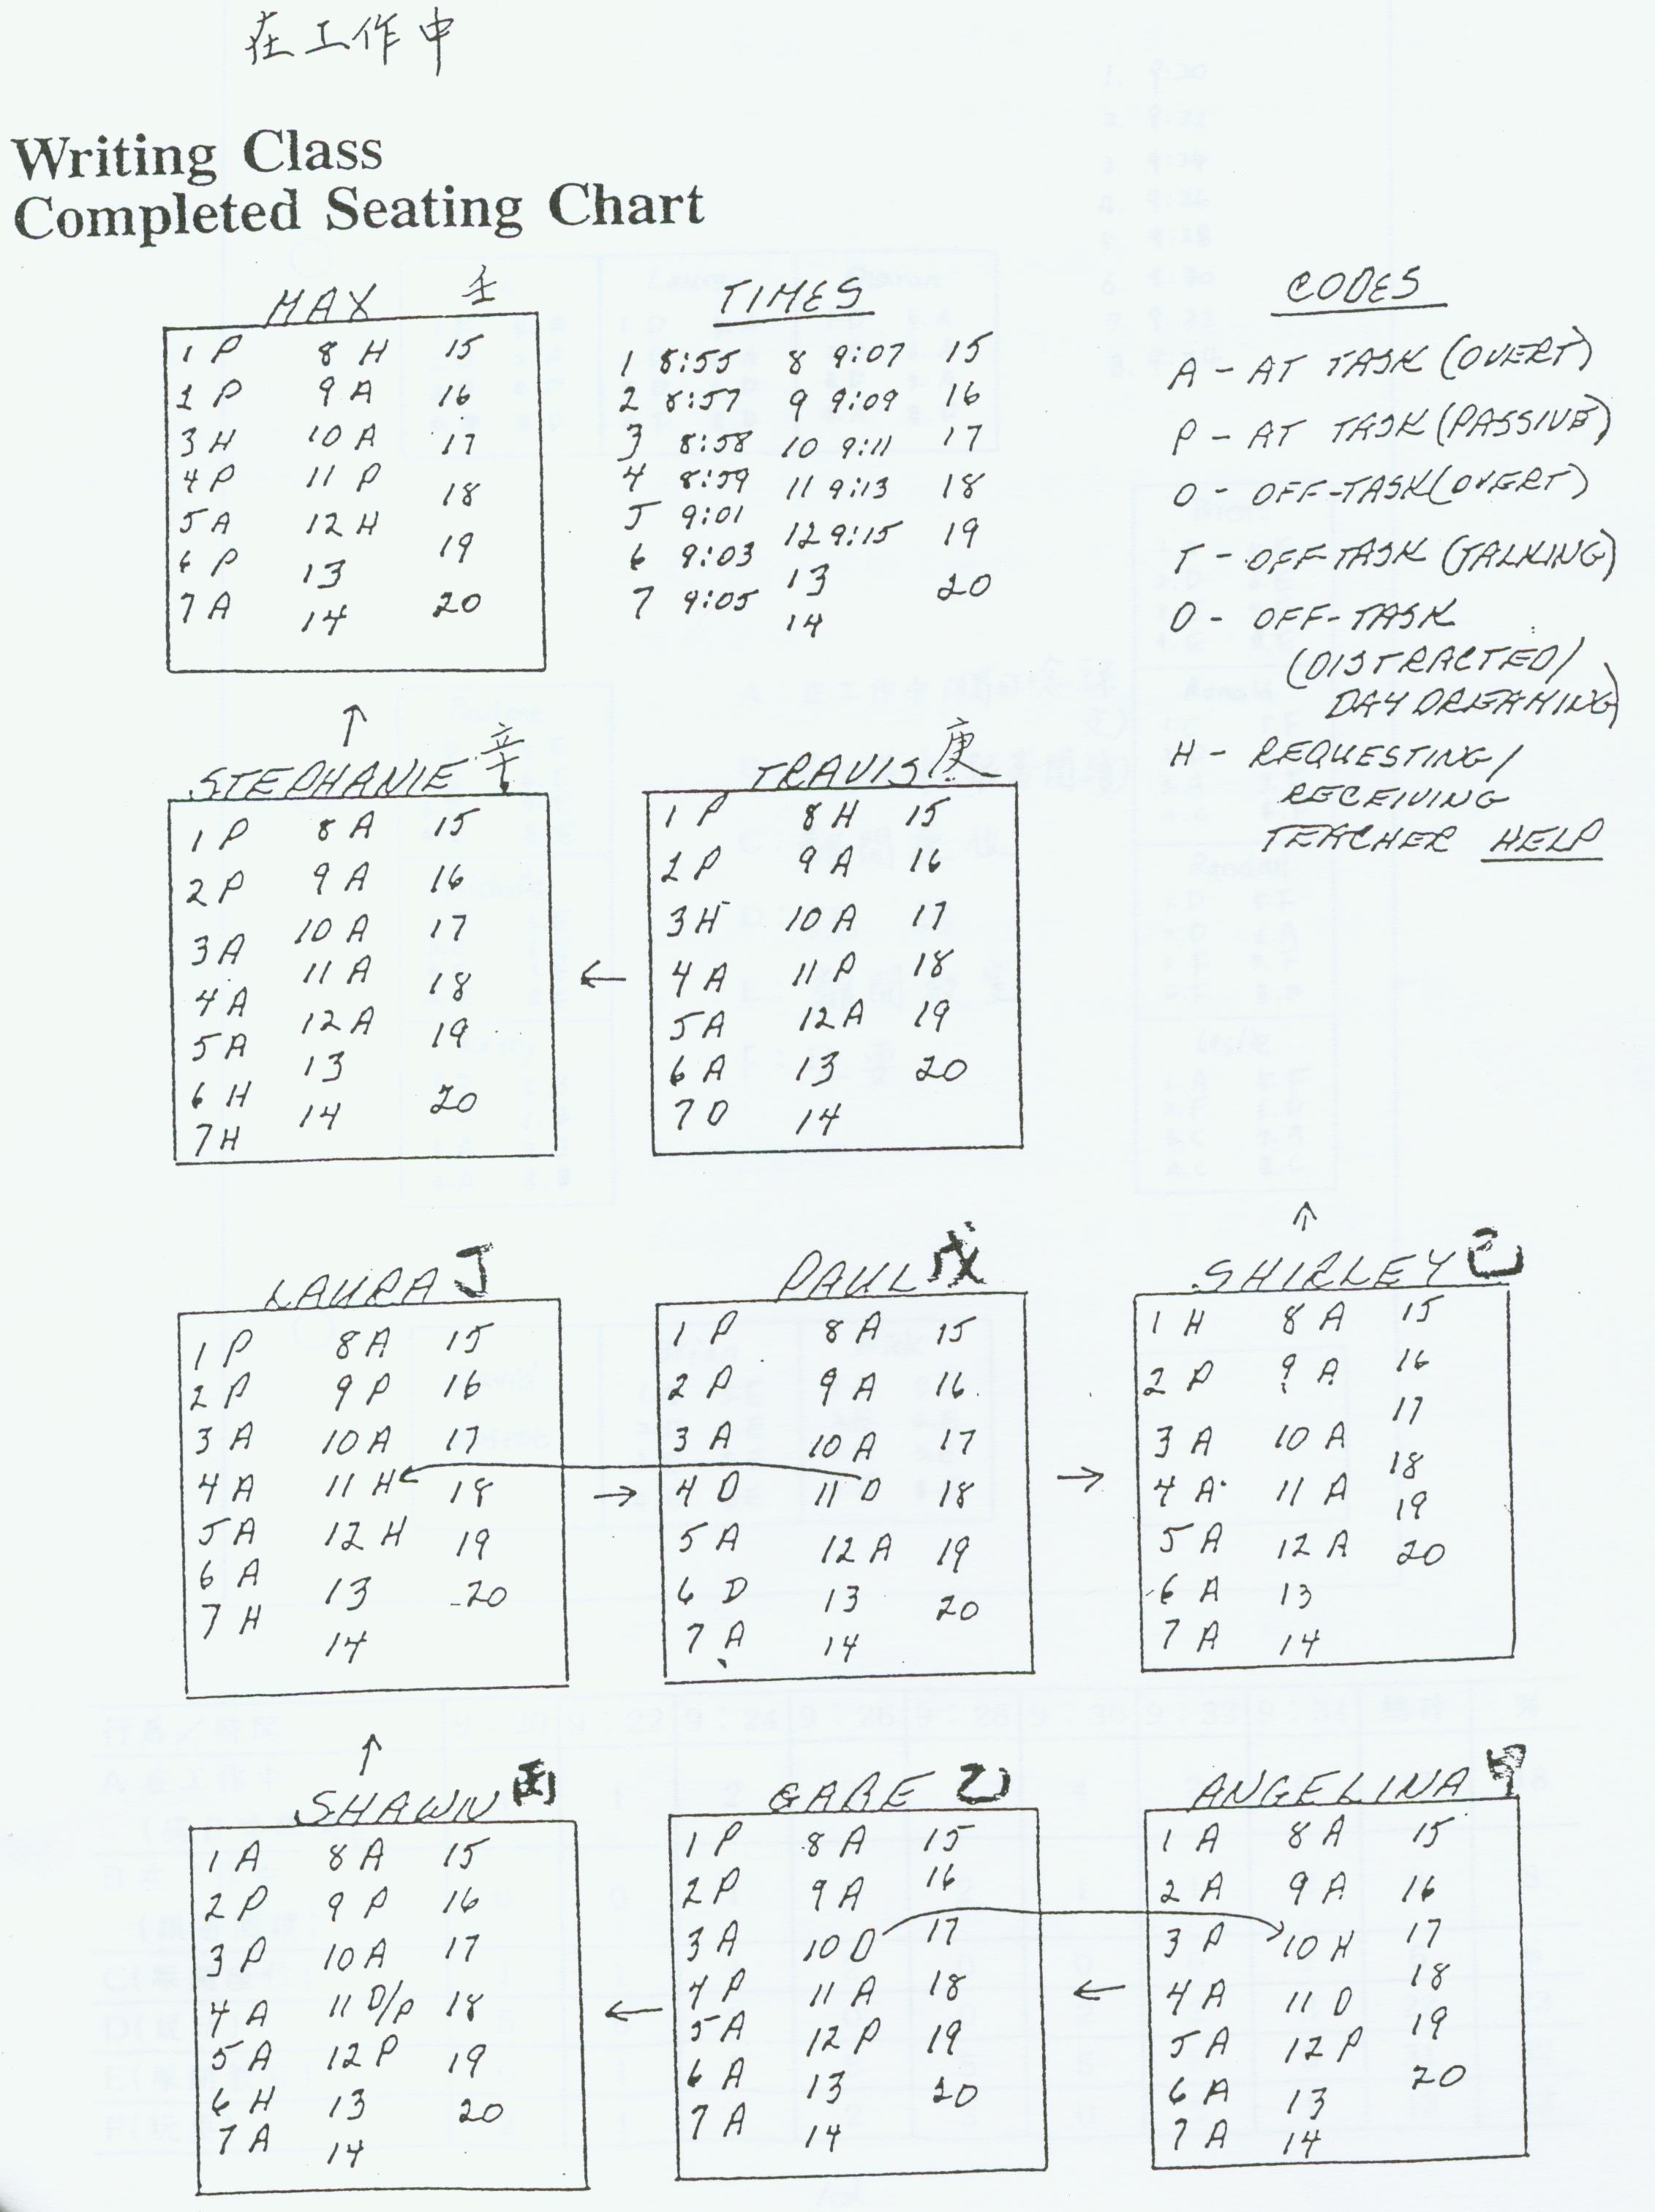 在工作中
Writing Class
Completed Seating Chart
MAX 壬
1 P 8 H 15
2 P 9 A 16
3 H 10 A 17
4 P 11 P 18
5 A 12 H 19
6 P 13 20
7 A 14
TIMES
1 8:55 8 9:07 15
2 8:57 9 9:09 16
3 8:58 10 9:11 17
4 8:59 11 9:13 18
5 9:01 12 9:15 19
6 9:03 13 20
7 9:05 14
CODES
A - AT TASK (OVERT)
P - AT TASK (PASSIVE)
O - OFF-TASK (OVERT)
T - OFF TASK (TALKING)
D - OFF-TASK
(DISTRACTED/
DAY DREAMING)
H - REQUESTING/
RECEIVING
TEACHER HELP
STEPHANIE 辛
1 P 8 A 15
2 P 9 A 16
3 A 10 A 17
4 A 11 A 18
5 A 12 A 19
6 H 13 20
7 H 14
TRAVIS 庚
1 P 8 H 15
2 P 9 A 16
3 H 10 A 17
4 A 11 P 18
5 A 12 A 19
6 A 13 20
7 D 14
LAURA 丁
1 P 8 A 15
2 P 9 P 16
3 A 10 A 17
4 A 11 H 18
5 A 12 H 19
6 A 13 20
7 H 14
PAUL 戊
1 P 8 A 15
2 P 9 A 16
3 A 10 A 17
4 D 11 D 18
5 A 12 A 19
6 D 13 20
7 A 14
SHIRLEY 己
1 H 8 A 15
2 P 9 A 16
3 A 10 A 17
4 A 11 A 18
5 A 12 A 19
6 A 13 20
7 A 14
SHAWN 丙
1 A 8 A 15
2 P 9 P 16
3 P 10 A 17
4 A 11 D/P 18
5 A 12 P 19
6 H 13 20
7 A 14
GABE 乙
1 P 8 A 15
2 P 9 A 16
3 A 10 D 17
4 P 11 A 18
5 A 12 P 19
6 A 13 20
7 A 14
ANGELINA 甲
1 A 8 A 15
2 A 9 A 16
3 P 10 H 17
4 A 11 D 18
5 A 12 P 19
6 A 13 20
7 A 14